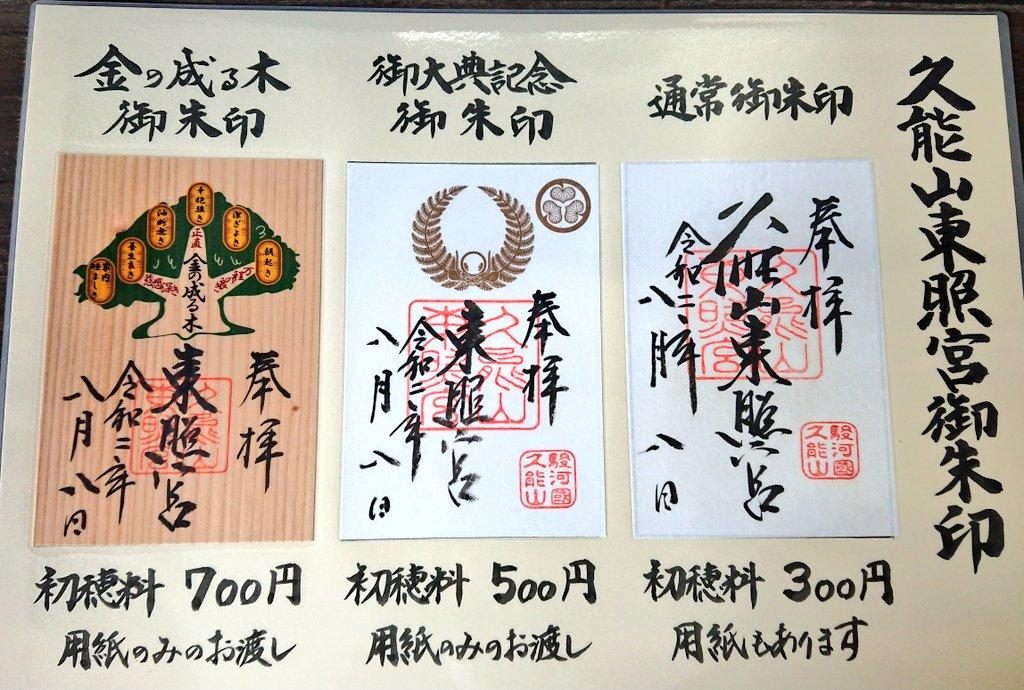 久能山東照宮御朱印
通常御朱印
奉拝
久能山東照宮
令和二年
八月八日
駿河國
久能山
初穂料 300円
用紙もあります
御大典記念
御朱印
奉拝
東照宮
久能山
東照宮
令和二年
八月八日
駿河國
久能山
初穂料 500円
用紙のみのお渡し
金の成る木
御朱印
朝起き
潔ぎよき
辛抱強き
油断無き
養生良き
家内睦ましき
正直
慈悲深き
金の成る木
奉拝
東照宮
令和二年
八月八日
初穂料 700円
用紙のみのお渡し